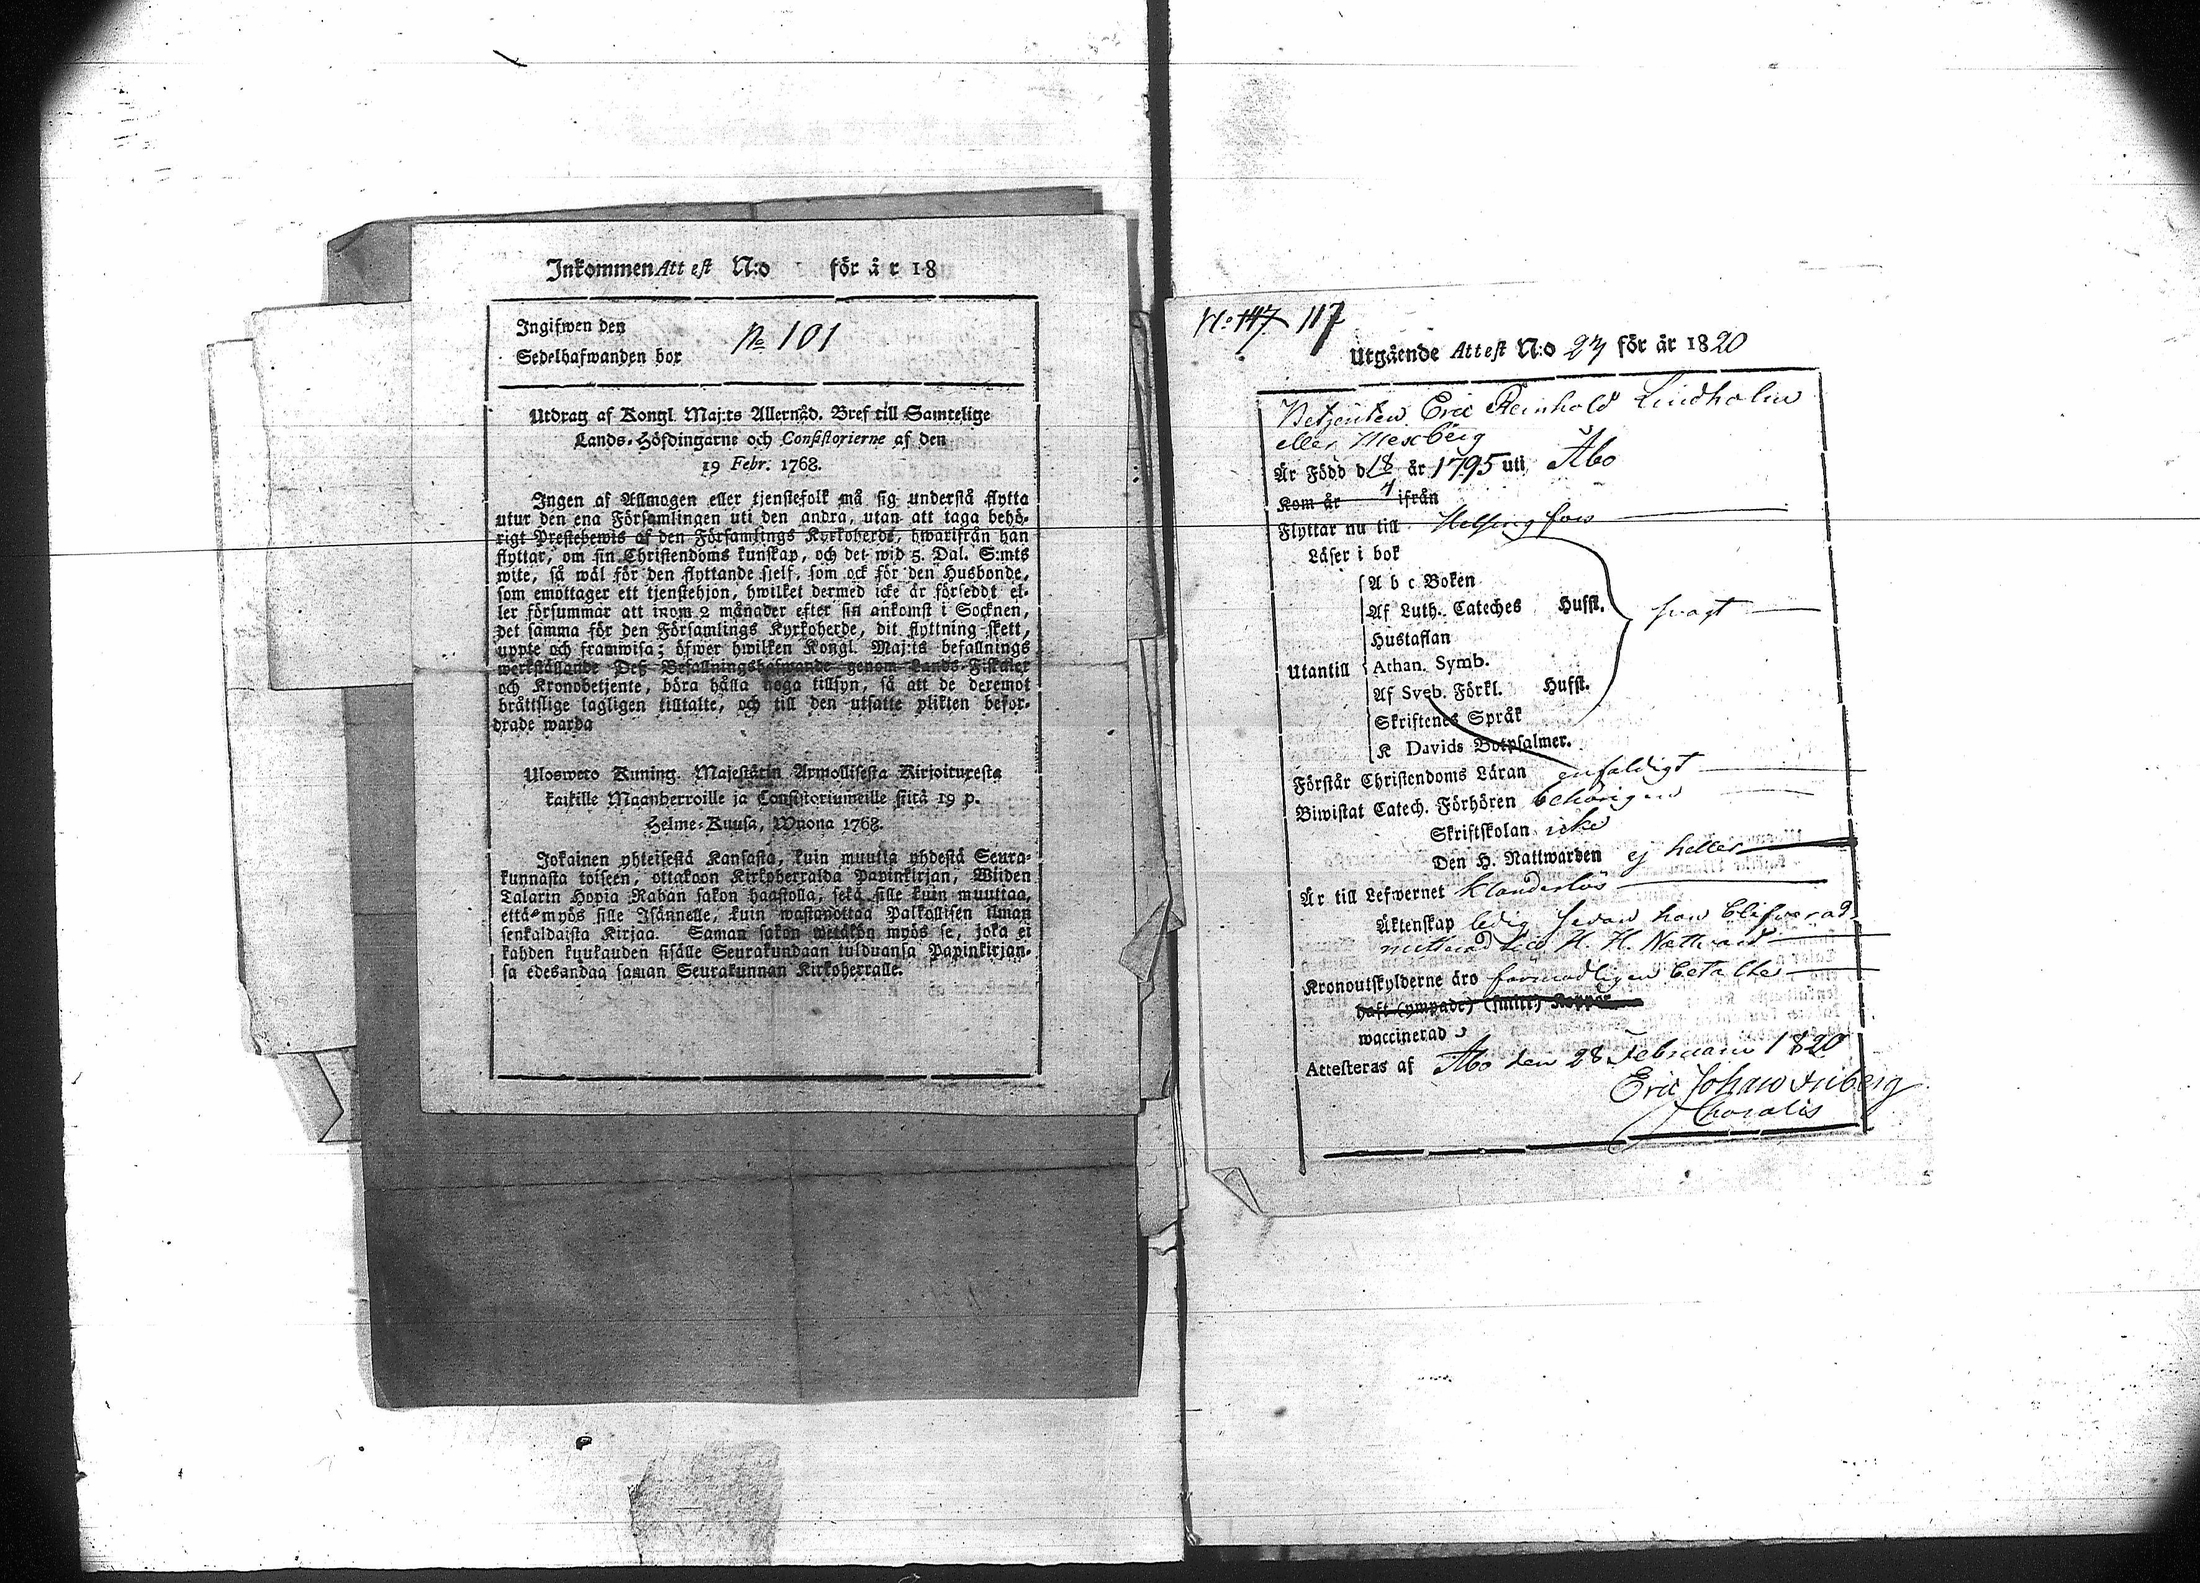 Inkommen Attest N:o för år 18
Ingifwen den
No 101
Sedelhafwanden bor
Utdrag af Kongl. Maj:ts Allernåd. Bref till Samtelige
Lands-Höfdingarne och Consistorierne af den
19 Febr. 1768.
Ingen af Allmogen eller tjenstefolk må sig understå flytta
utur den ena Församlingen uti den andra, utan att taga behö-
rigt Prestebewis af den Församlings Kyrkoherde, hwarifrån han
flyttar, om sin Christendoms kunskap, och det wid 5. Dal. S:mts
wite, så wäl för den flyttande sjelf, som ock för den Husbonde,
som emottager ett tjenstehjon, hwilket dermed icke är förseddt el-
ler försummar att inom 2 månader efter sin ankomst i Socknen,
det samma för den Församlings Kyrkoherde, dit flyttning skett,
uppte och framwisa; öfwer hwilken Kongl. Maj:ts befallnings
werkställande Deß Befallningshafwande genom Lands-Fiskaler
och Kronobetjente, böra hålla noga tillsyn, så att de deremot
bråttslige lagligen tilltalte, och till den utsatte plikten befor-
drade warda
Ulosweto Kuning. Majestätin Armollisesta Kirjoituxesta
kaikille Maanherroille ja Consistoriumeille siitä 19 p.
Helme-Kuusa, Wuona 1768.
Jokainen yhteisestä Kansasta, kuin muutta yhdestä Seura-
kunnasta toiseen, ottakoon Kirkoherralda Papinkirjan, Wiiden
Talarin Hopia Rahan sakon haastolla, sekä sille kuin muuttaa,
että myös sille Isännelle, kuin wastanottaa Palkollisen ilman
senkaldaista Kirjaa. Saman sakon wetäkön myös se, joka ei
kahden kuukauden sisälle Seurakundaan tulduansa Papinkirjan-
sa edesandaa saman Seurakunnan Kirkoherralle.
No 147 117
Utgående Attest N:o 27 för år 1820
Betjenten Eric Reinhold Lindholm
eller Mexberg
Är Född d 18/4 år 1795 uti Åbo
Kom år ifrån
Flyttar nu till Helsingfors
Läser i bok
A b c Boken
Af Luth. Cateches Hufst.
Hustaflan
Utantill Athan. Symb.
Af Sveb. Förkl. Hufst.
Skriftenes Språk
K Davids Botpsalmer.
Förstår Christendoms Läran enfaldigt
Biwistat Catech. Förhören behörigen
Skriftskolan icke
Den H. Nattwarden ej heller
Är till Lefwernet klanderlös
Äktenskap ledig sedan han blifwer ad
mitterad till H. H. Nattward
Kronoutskylderne äro förmodligen betalte
haft (ympade) (smitt) Koppor
waccinerad
Attesteras af Åbo den 28 Februarii 1820
Eric Johan